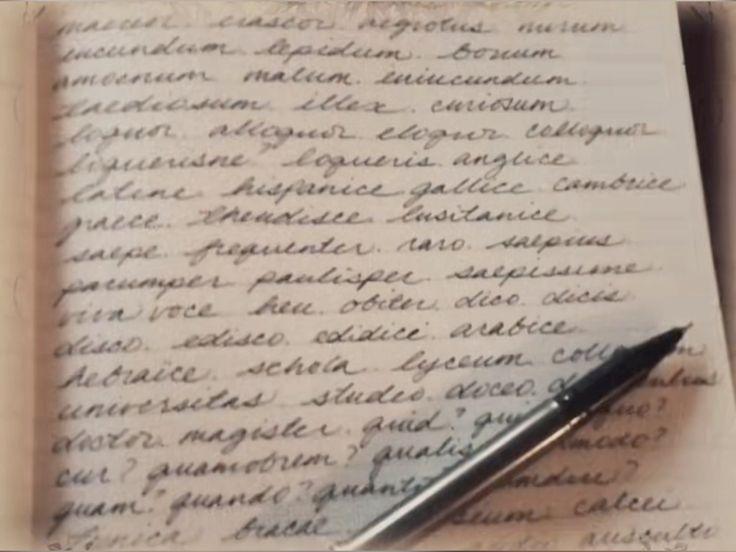 maereor. irascor. aegrotus. mirum
iucundum. lepidum. bonum
amoenum. malum. iniucundum.
taediosum. illex. curiosum
loquor. alloquor. eloquor. colloquor
loquerisne? loqueris. anglice
latine hispanice gallice. cambrice
graece. theudisce. lusitanice.
saepe. frequenter. raro. saepius
parumper paulisper. saepissime
viva voce heu. obiter. dico. dicis
disco. edisco. edidici. arabice.
hebraice. schola. lyceum
universitas studeo. doceo.
doctor. magister. quid? quo?
cur? quamobrem? qualis
quam? quando?
tunica bracae calcei
ausculto